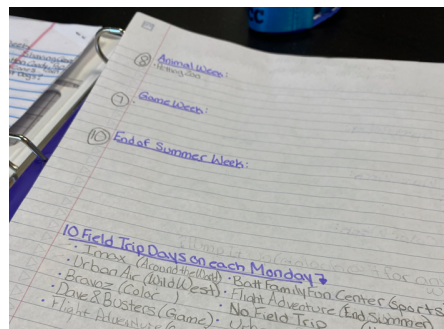 8 Animal Week:
9 Game Week:
10 End of Summer Week:
10 Field Trip Days on each Monday
· Imax (Around the World) · Batt Family Fun Center (Sports
· Urban Air (Wild West) · Flight Adventure (End Summer)
· Bravoz (Color ) · No Field Trip
· Dave & Busters (Game) · Urb
· Flight Adventure